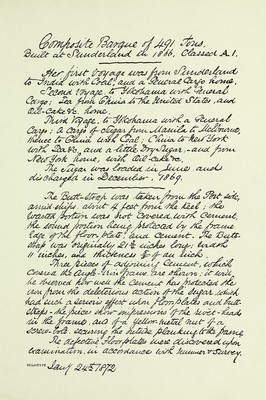 Composite Barque of 491 Tons.
Built at Sunderland in 1866, Classed A.1.
Her first Voyage was from Sunderland
to India with Coals, and a General Cargo home.
Second Voyage, to Yokohama with General
Cargo; Tea from China to the United States, and
Oil-cake &c. home.
Third Voyage, to Yokohama with a General
Cargo; A Cargo of Sugar from Manila to Melbourne,
thence to China with Coal; China to New York
with Tea &c., and a little Dry Sugar, - and from
New York home, with Oil-cake &c.
The Sugar was loaded in June and
discharged in December, 1869.
The Butt-Strap was taken from the Port side,
amidships, about 4 feet from the keel; the
wasted portion was not covered with Cement,
the sound portion being protected by the frame
Edge of the floor plate, and Cement. The Butt-
strap was originally 21½ inches long, width
11 inches, and thickness of an inch.
Three pieces of adjoining Cement, which
covered the Angle-Iron frame are shown: it will
be observed how well the Cement has protected the
iron from the deleterious action of the Sugar which
had such a serious effect upon floor plates and butt-
straps - the pieces show impressions of the rivet-heads
in the frame, and of a Yellow-metal nut of a
screw-bolt, securing the outside planking to the frame.
The defective floor plates were discovered upon
examination, in accordance with Survey.
Jany 24th 1872